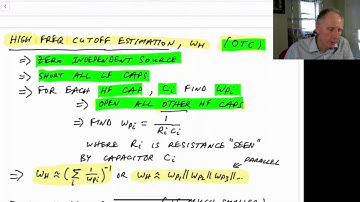 HIGH FREQ CUTOFF ESTIMATION, ωH (OTC)
⇒ ZERO INDEPENDENT SOURCE
⇒ SHORT ALL LF CAPS
⇒ FOR EACH HF CAP, Ci FIND ωPi
⇒ OPEN ALL OTHER HF CAPS
⇒ FIND ωPi = 1 / (Ri Ci)
WHERE Ri IS RESISTANCE "SEEN"
BY CAPACITOR Ci
PARALLEL
⇒ ωH ≈ (∑i 1/ωPi)⁻¹ OR ωH ≈ ωP1 || ωP2 || ωP3 || ...